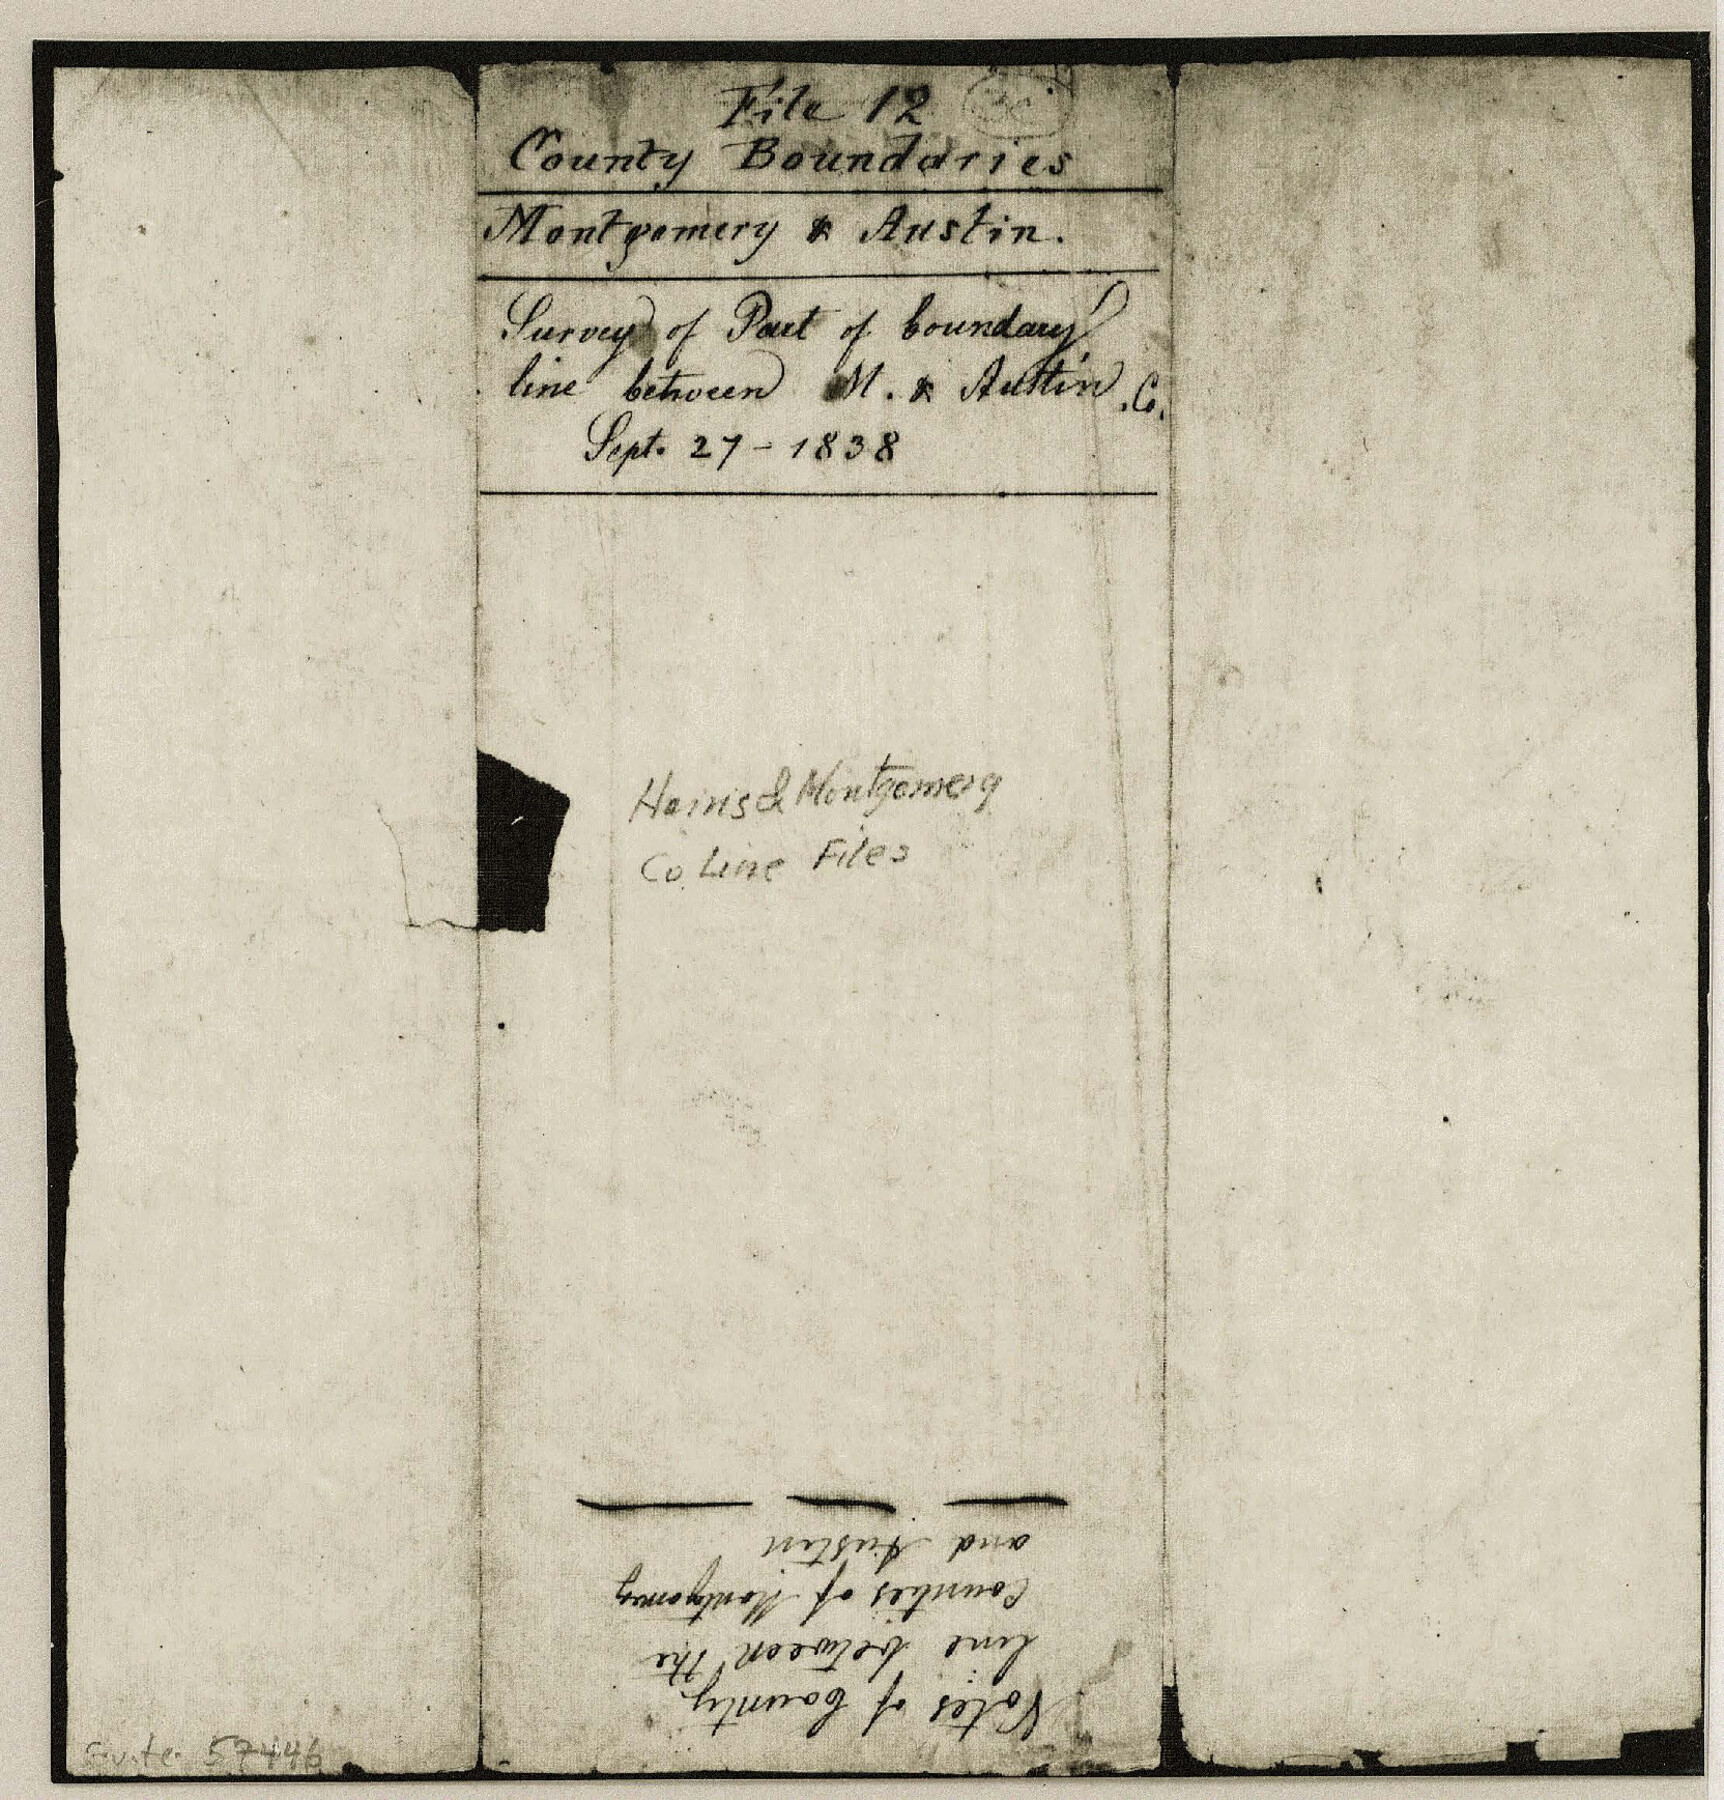 File 12
County Boundaries
Montgomery & Austin.
Survey of Part of boundary
line between M. & Austin Co.
Sept. 27 - 1838
Harris & Montgomery
Co. Line Files
Notes of County
line between the
Counties of Montgomery
and Austin
57446